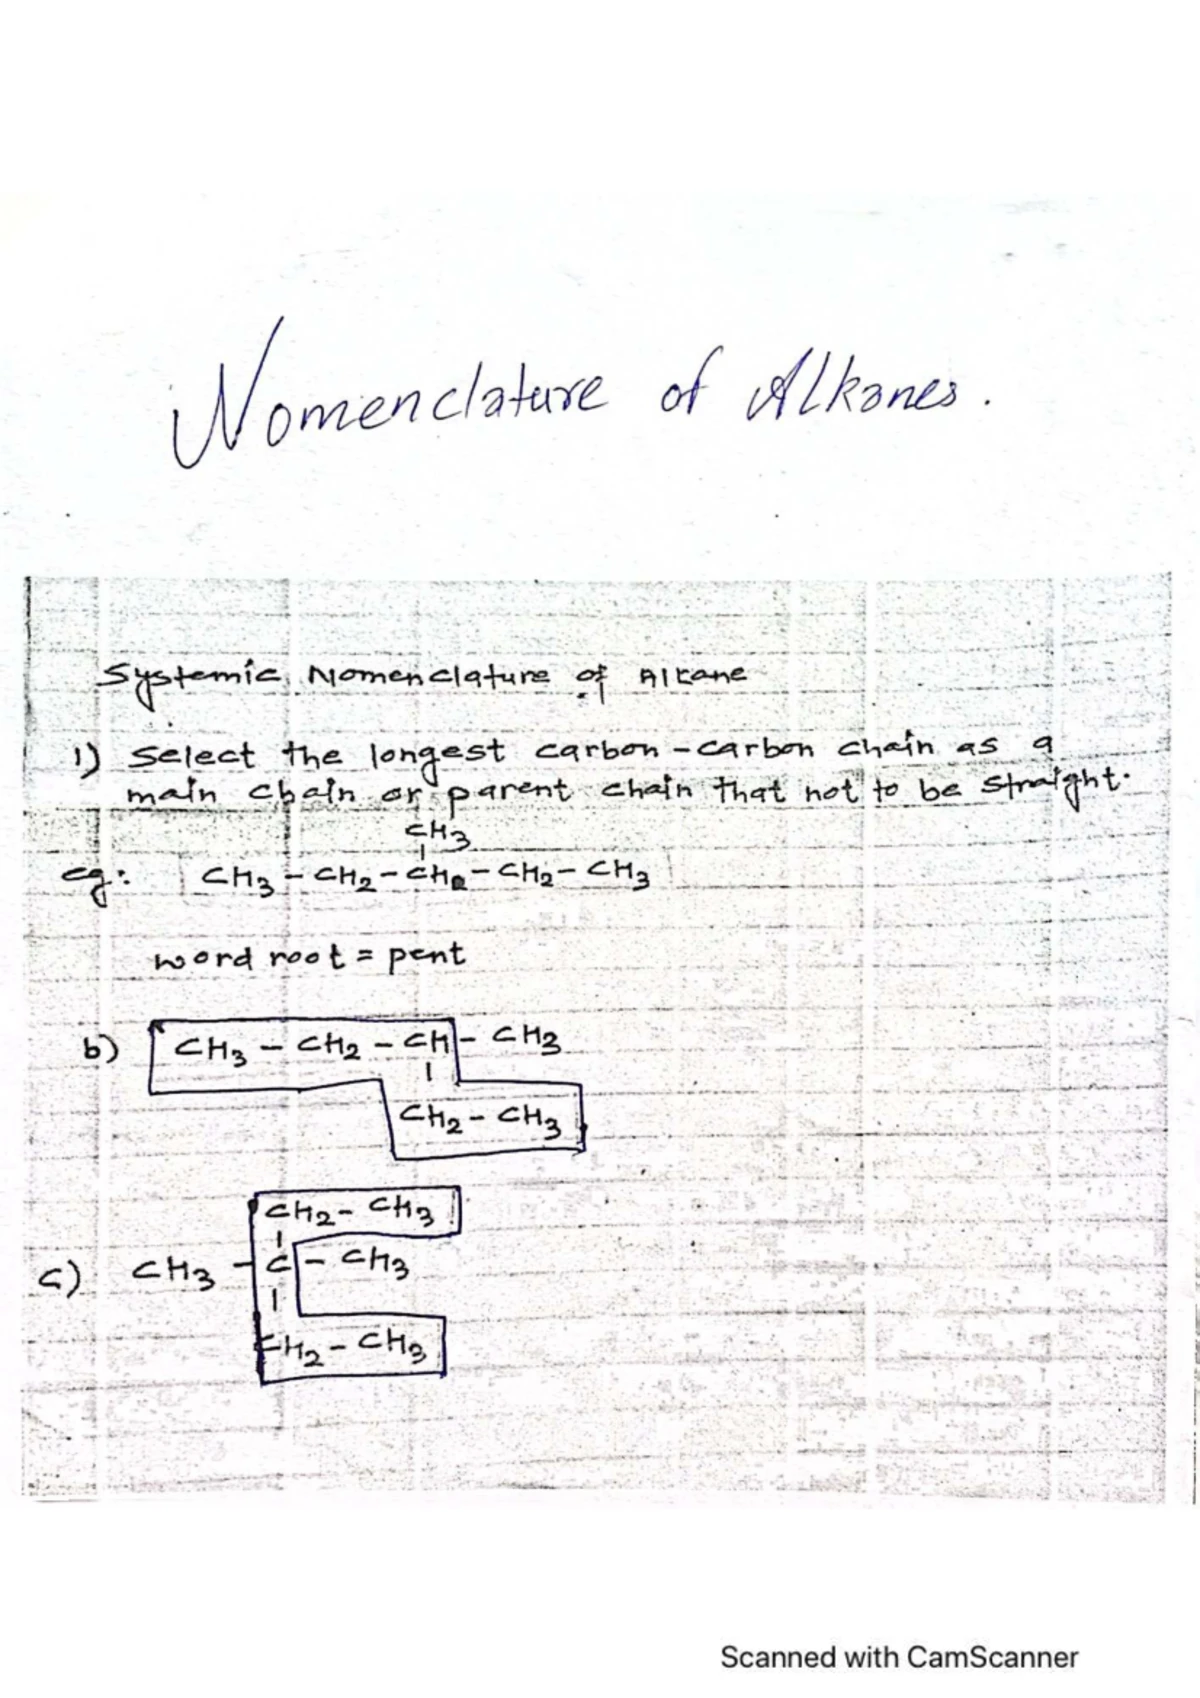 Nomenclature of Alkanes.
Systemic Nomenclature of Alkane
1) Select the longest carbon-carbon chain as a
main chain or parent chain that not to be straight.
CH3
|
eg: CH3 - CH2 - CH - CH2 - CH3
word root = pent
b) CH3 - CH2 - CH - CH3
|
CH2 - CH3
CH2 - CH3
|
c) CH3 - C - CH3
|
CH2 - CH3
Scanned with CamScanner